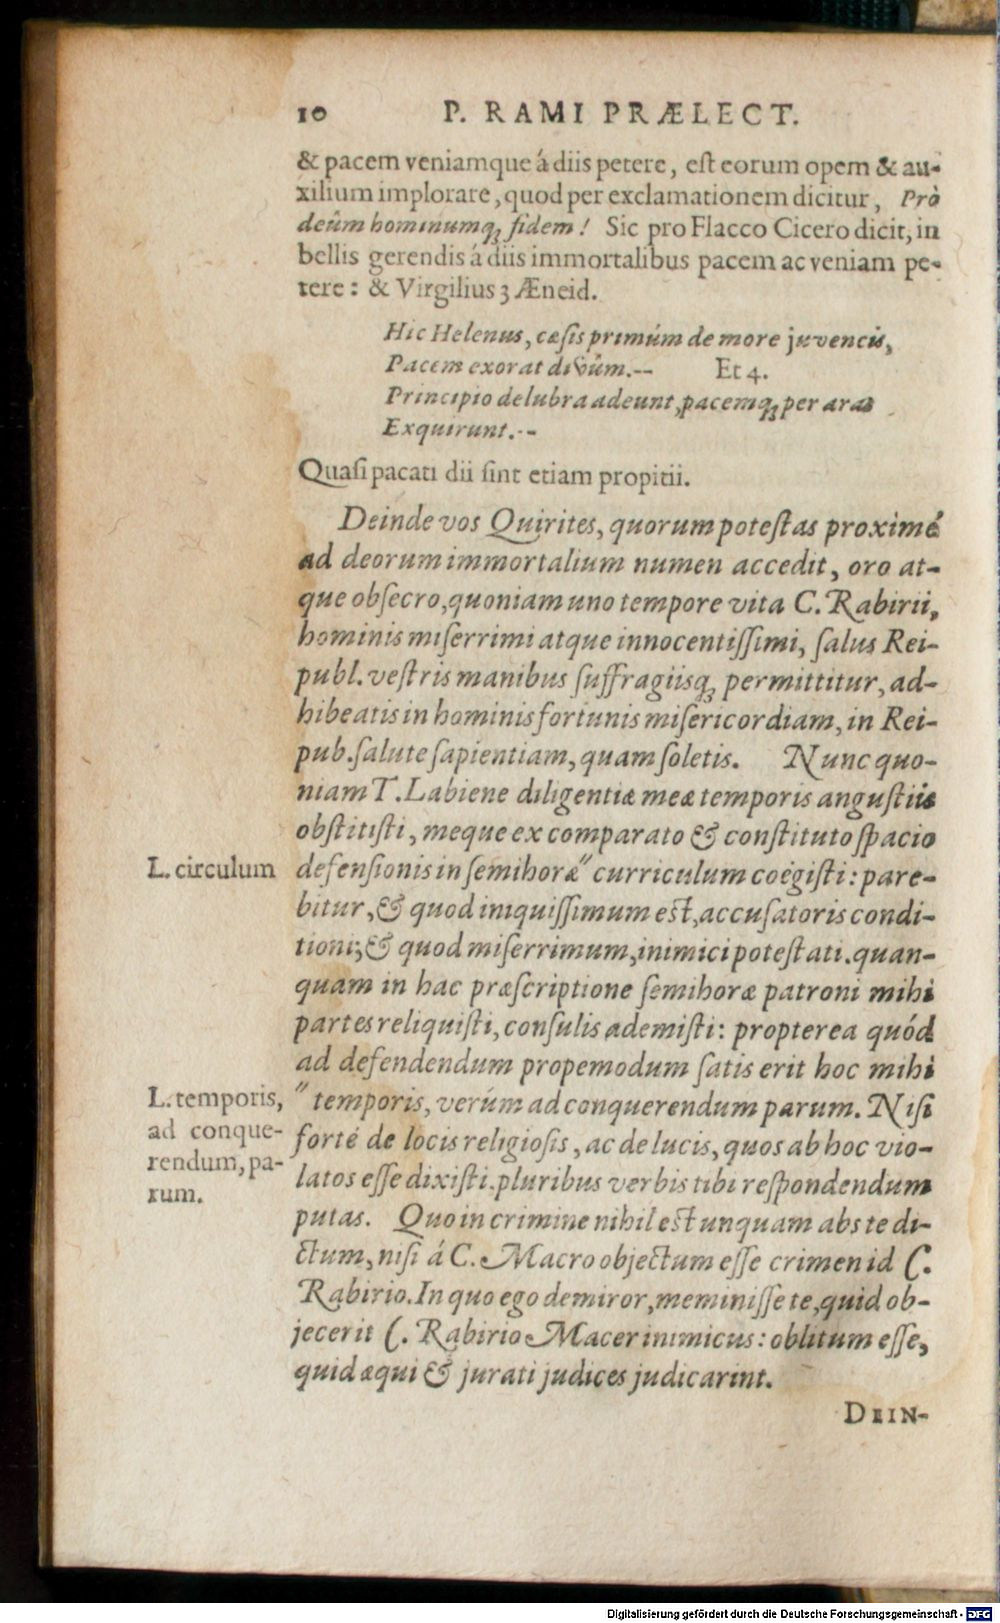 10 P. RAMI PRÆLECT.
& pacem veniamque á diis petere, est eorum opem & au-
xilium implorare, quod per exclamationem dicitur, Prò
deûm hominumq; fidem! Sic pro Flacco Cicero dicit, in
bellis gerendis á diis immortalibus pacem ac veniam pe-
tere: & Virgilius 3 Æneid.
Hic Helenus, cæsis primúm de more juvencis,
Pacem exorat divûm.-- Et 4.
Principio delubra adeunt, pacemq; per aras
Exquirunt.--
Quasi pacati dii sint etiam propitii.
Deinde vos Quirites, quorum potestas proximé
ad deorum immortalium numen accedit, oro at-
que obsecro, quoniam uno tempore vita C. Rabirii,
hominis miserrimi atque innocentissimi, salus Rei-
publ. vestris manibus suffragiisq; permittitur, ad-
hibeatis in hominis fortunis misericordiam, in Rei-
pub. salute sapientiam, quam soletis. Nunc quo-
niam T. Labiene diligentiæ meæ temporis angustiis
obstitisti, meque ex comparato & constituto spacio
L. circulum defensionis in semihoræ " curriculum coëgisti: pare-
bitur, & quod iniquissimum est, accusatoris condi-
tioni; & quod miserrimum, inimici potestati. quan-
quam in hac præscriptione semihoræ patroni mihi
partes reliquisti, consulis ademisti: propterea quód
ad defendendum propemodum satis erit hoc mihi
L. temporis, " temporis, verúm ad conquerendum parum. Nisi
ad conque- forté de locis religiosis, ac de lucis, quos ab hoc vio-
rendum, pa- latos esse dixisti. pluribus verbis tibi respondendum
rum. putas. Quo in crimine nihil est unquam abs te di-
ctum, nisi á C. Macro objectum esse crimen id C.
Rabirio. In quo ego demiror, meminisse te, quid ob-
jecerit C. Rabirio Macer inimicus: oblitum esse,
quid æqui & jurati judices judicarint.
DEIN-
Digitalisierung gefördert durch die Deutsche Forschungsgemeinschaft - DFG